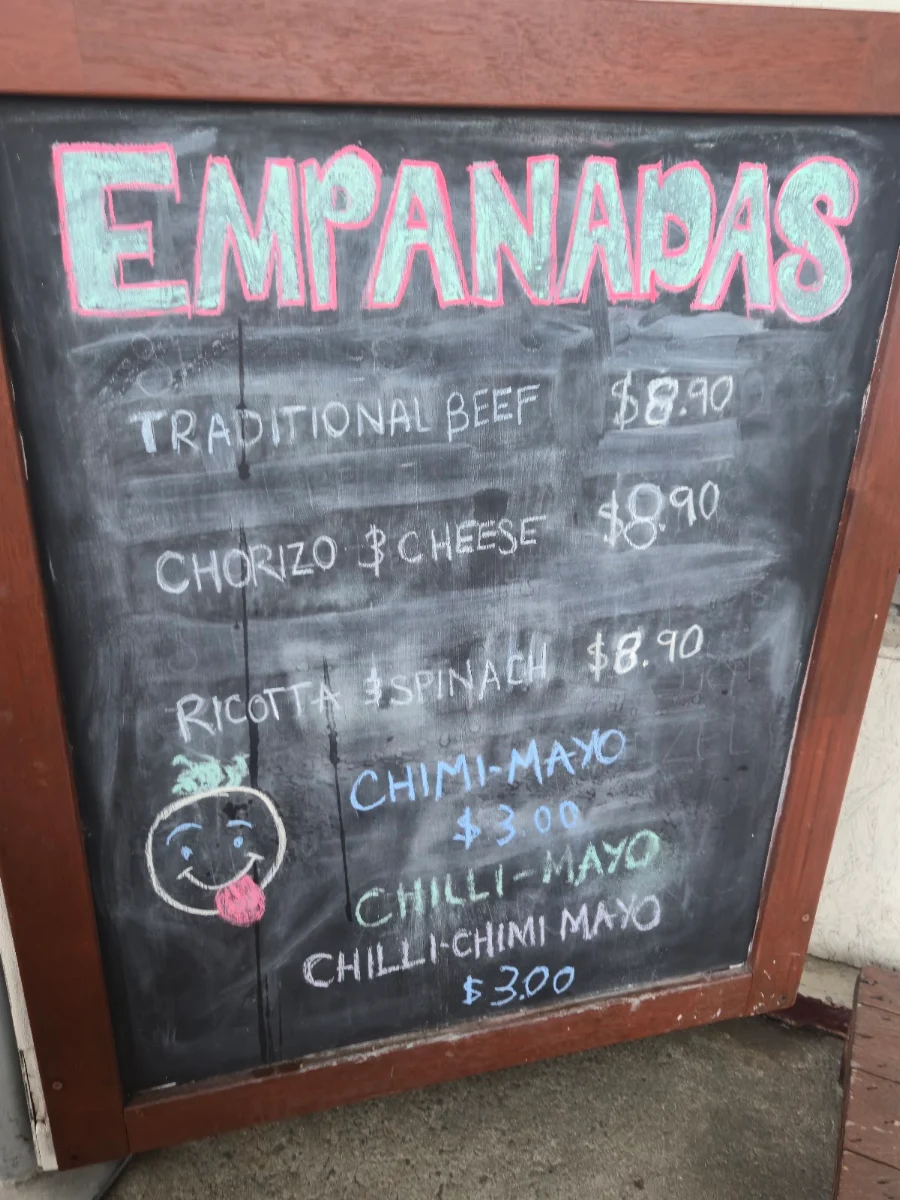 EMPANADAS
TRADITIONAL BEEF $8.90
CHORIZO & CHEESE $8.90
RICOTTA & SPINACH $8.90
CHIMI-MAYO
$3.00
CHILLI-MAYO
CHILLI-CHIMI MAYO
$3.00